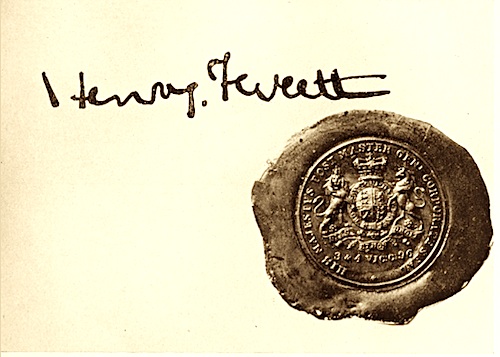 Henry. Fawcett
MAJESTYS POST MASTER GENL CORPORATE SEAL
3 & 4 VIC. C. 96